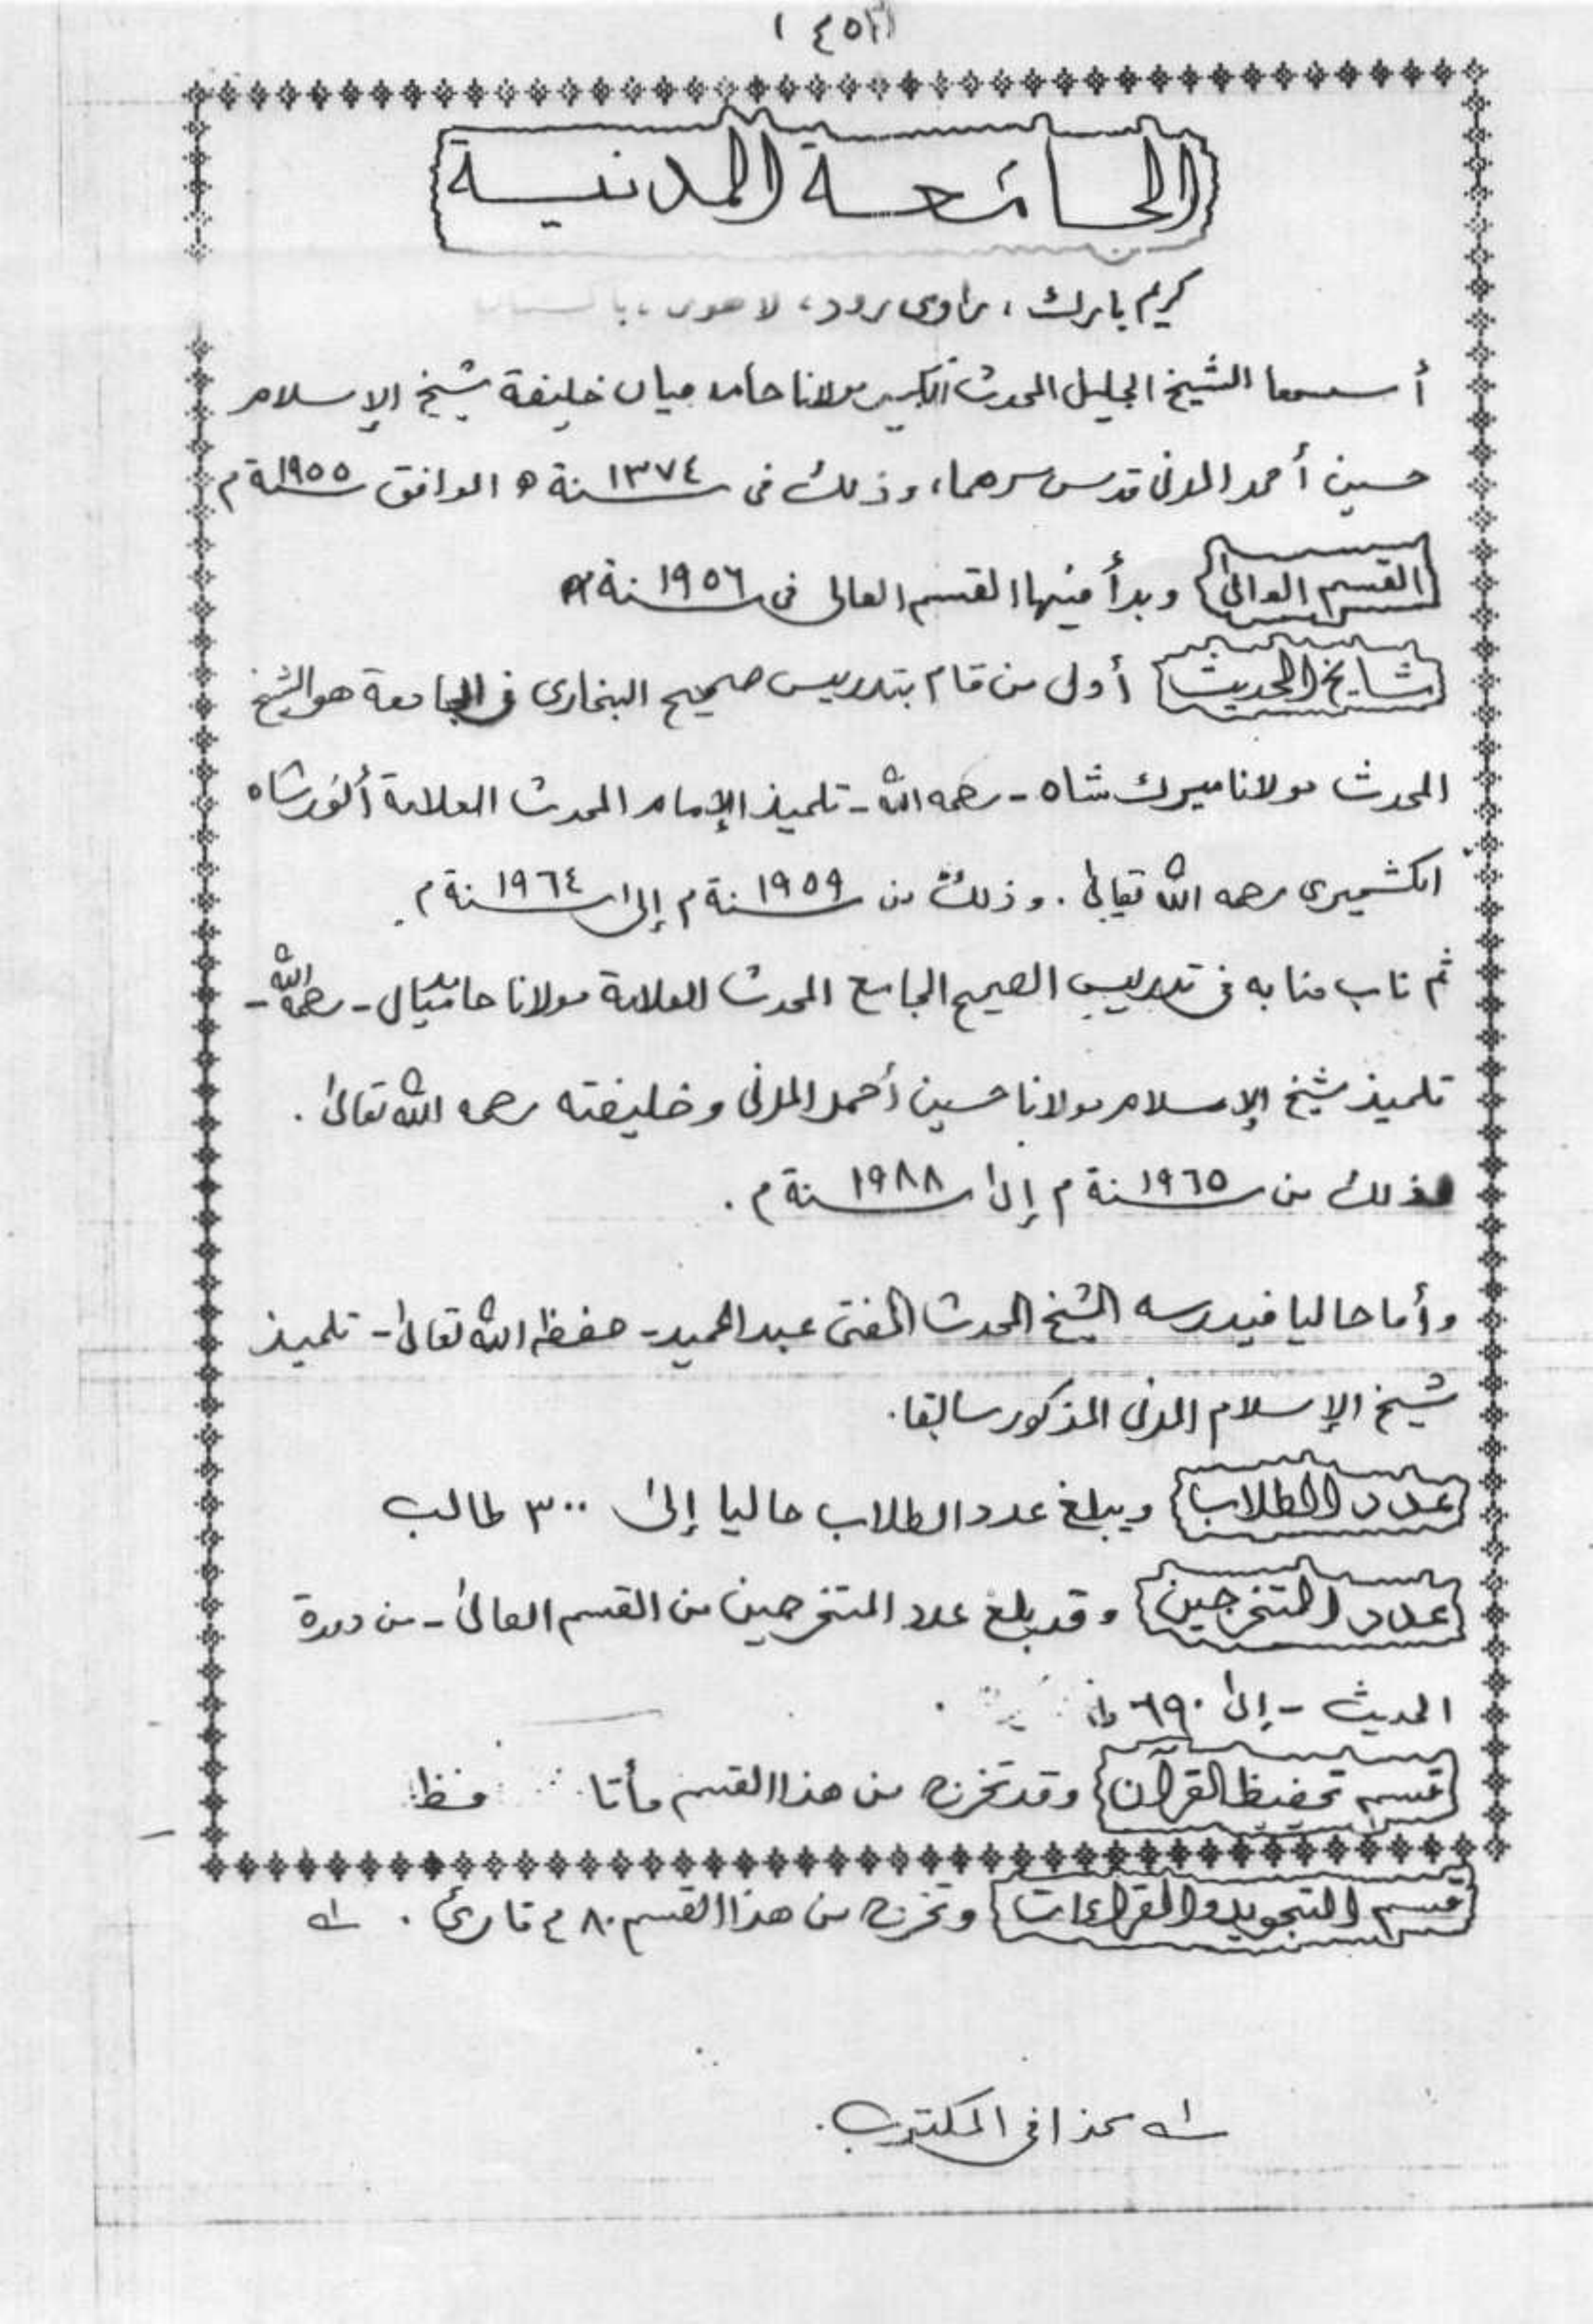 الجامعة المدنية
كريم بارك، راوى رود، لاهور، باكستان
أسسها الشيخ الجليل المحدث الكبير مولانا حامد ميان خليفة شيخ الإسلام
حسين أحمد المدنى قدس سرهما، وذلك فى سنة ١٣٧٤ ه الموافق سنة ١٩٥٥ م
القسم العالى وبدأ فيها القسم العالى فى سنة ١٩٥٦ م
مشايخ الحديث أول من قام بتدريس صحيح البخارى فى الجامعة هو الشيخ
المحدث مولانا ميرك شاه - رحمه الله - تلميذ الإمام المحدث العلامة أنور شاه
الكشميرى رحمه الله تعالى. وذلك من سنة ١٩٥٩ م إلى سنة ١٩٦٤ م.
ثم ناب منابه فى تدريس الصحيح الجامع المحدث العلامة مولانا حامد ميان - رحمه الله -
تلميذ شيخ الإسلام مولانا حسين أحمد المدنى وخليفته رحمه الله تعالى.
وذلك من سنة ١٩٦٥ م إلى سنة ١٩٨٨ م.
وأما حاليا فيدرسه الشيخ المحدث المفتى عبد الحميد - حفظه الله تعالى - تلميذ
شيخ الإسلام المدنى المذكور سابقا.
عدد الطلاب ويبلغ عدد الطلاب حاليا إلى ٣٠٠ طالب
عدد المتخرجين وقد بلغ عدد المتخرجين من القسم العالى - من دورة
الحديث - إلى ٦٩٠
قسم تحفيظ القرآن وقد تخرج من هذا القسم مأتا
قسم التجويد والقراءات وتخرج من هذا القسم ٤٨٠ قارئ. ــه
ــه هكذا فى المكتوب.